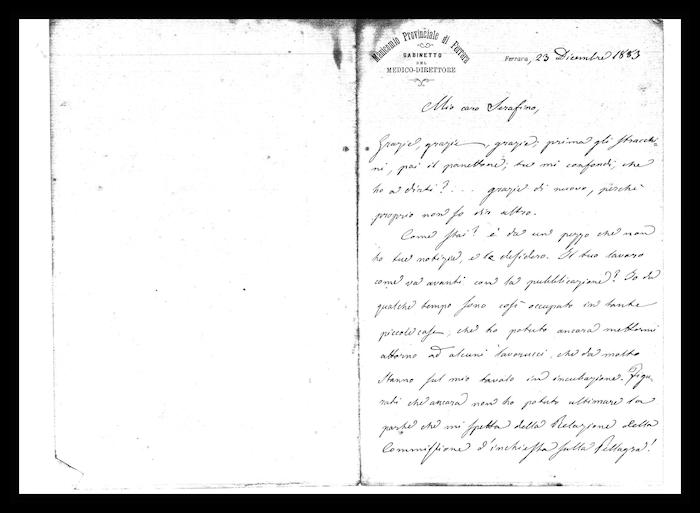 Manicomio Provinciale di Ferrara
GABINETTO
DEL
MEDICO-DIRETTORE
Ferrara, 23 Dicembre 1883
Mio caro Serafino,
Grazie, grazie, grazie; prima gli stracchi-
ni, poi il panettone; tu mi confondi, che
ho a dirti? . . . grazie di nuovo, perchè
proprio non so dir altro.
Come stai? è da un pezzo che non
ho tue notizie, e le desidero. Il tuo lavoro
come va avanti con la pubblicazione? Io da
qualche tempo sono così occupato in tante
piccole cose, che ho potuto ancora mettermi
attorno ad alcuni lavorucci, che da molto
stanno sul mio tavolo in incubazione. Figu-
rati che ancora non ho potuto ultimare la
parte che mi spetta della Relazione della
Commissione d'inchiesta sulla Pellagra!